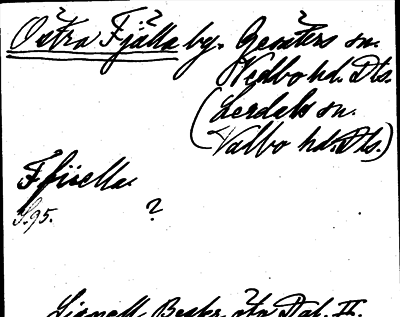 Östra Fjälla by. Gesäters sn.
Vedbo hd. Dls.
(Lerdals sn.
Valbo hd. Dls.)
Ffiella.
S. 95. ?
Lignell Beskr. öfv. Dal. II.